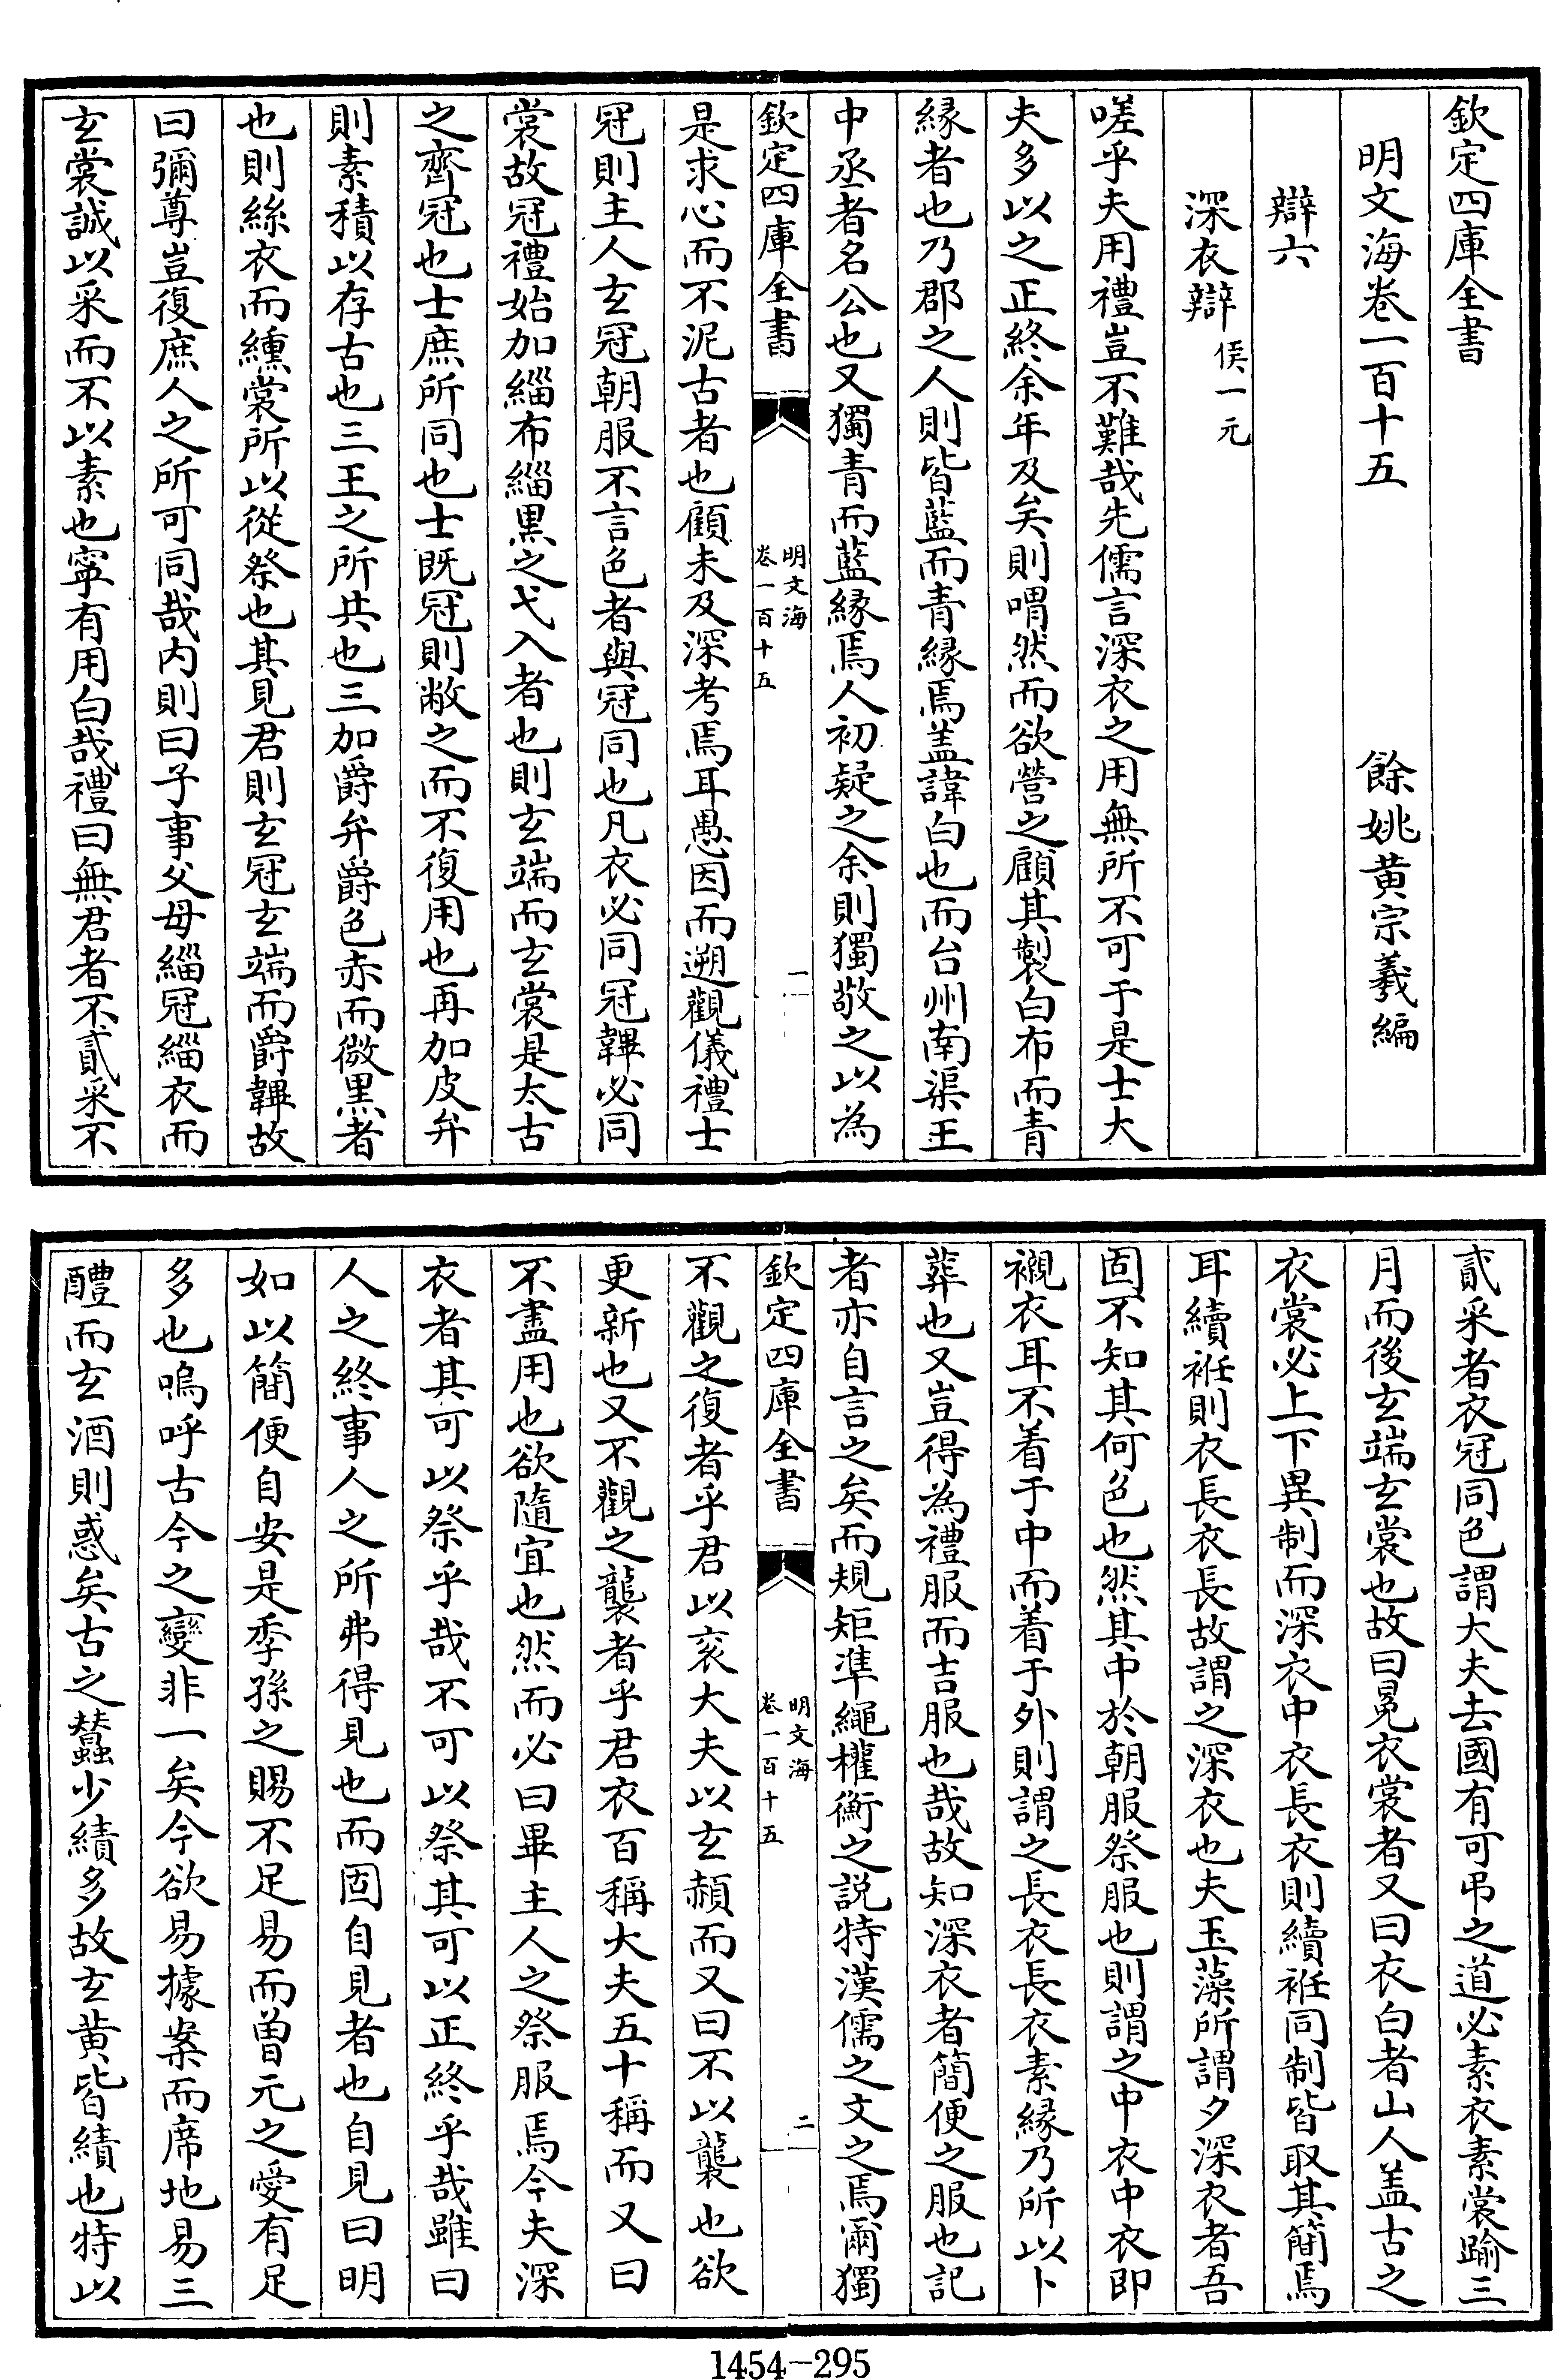 欽定四庫全書
明文海卷一百十五　餘姚黄宗羲編
辯六
深衣辯侯一元
嗟乎夫用禮豈不難哉先儒言深衣之用無所不可于是士大
夫多以之正終余年及矣則喟然而欲營之顧其製白布而青
緣者也乃郡之人則皆藍而青緣焉盖諱白也而台州南渠王
中丞者名公也又獨青而藍緣焉人初疑之余則獨敬之以為
欽定四庫全書　明文海卷一百十五　一
是求心而不泥古者也顧未及深考焉耳愚因而遡觀儀禮士
冠則主人玄冠朝服不言色者與冠同也凡衣必同冠韠必同
裳故冠禮始加緇布緇黒之弋入者也則玄端而玄裳是太古
之齊冠也士庶所同也士既冠則敝之而不復用也再加皮弁
則素積以存古也三王之所共也三加爵弁爵色赤而微黒者
也則絲衣而纁裳所以從祭也其見君則玄冠玄端而爵韠故
曰彌尊豈復庶人之所可同哉内則曰子事父母緇冠緇衣而
玄裳誠以采而不以素也寧有用白哉禮曰無君者不貳采不
貳采者衣冠同色謂大夫去國有可弔之道必素衣素裳踰三
月而後玄端玄裳也故曰冕衣裳者又曰衣白者山人盖古之
衣裳必上下異制而深衣中衣長衣則續袵同制皆取其簡焉
耳續袵則衣長衣長故謂之深衣也夫玉藻所謂夕深衣者吾
固不知其何色也然其中於朝服祭服也則謂之中衣中衣即
襯衣耳不着于中而着于外則謂之長衣長衣素緣乃所以卜
葬也又豈得為禮服而吉服也哉故知深衣者簡便之服也記
者亦自言之矣而規矩準繩權衡之説特漢儒之文之焉爾獨
欽定四庫全書　明文海卷一百十五　二
不觀之復者乎君以衮大夫以玄赬而又曰不以襲也欲
更新也又不觀之襲者乎君衣百稱大夫五十稱而又曰
不盡用也欲隨宜也然而必曰畢主人之祭服焉今夫深
衣者其可以祭乎哉不可以祭其可以正終乎哉雖曰
人之終事人之所弗得見也而固自見者也自見曰明
如以簡便自安是季孫之賜不足易而曽元之愛有足
多也嗚呼古今之變非一矣今欲易據案而席地易三
醴而玄酒則惑矣古之蠶少績多故玄黄皆績也特以
1454-295